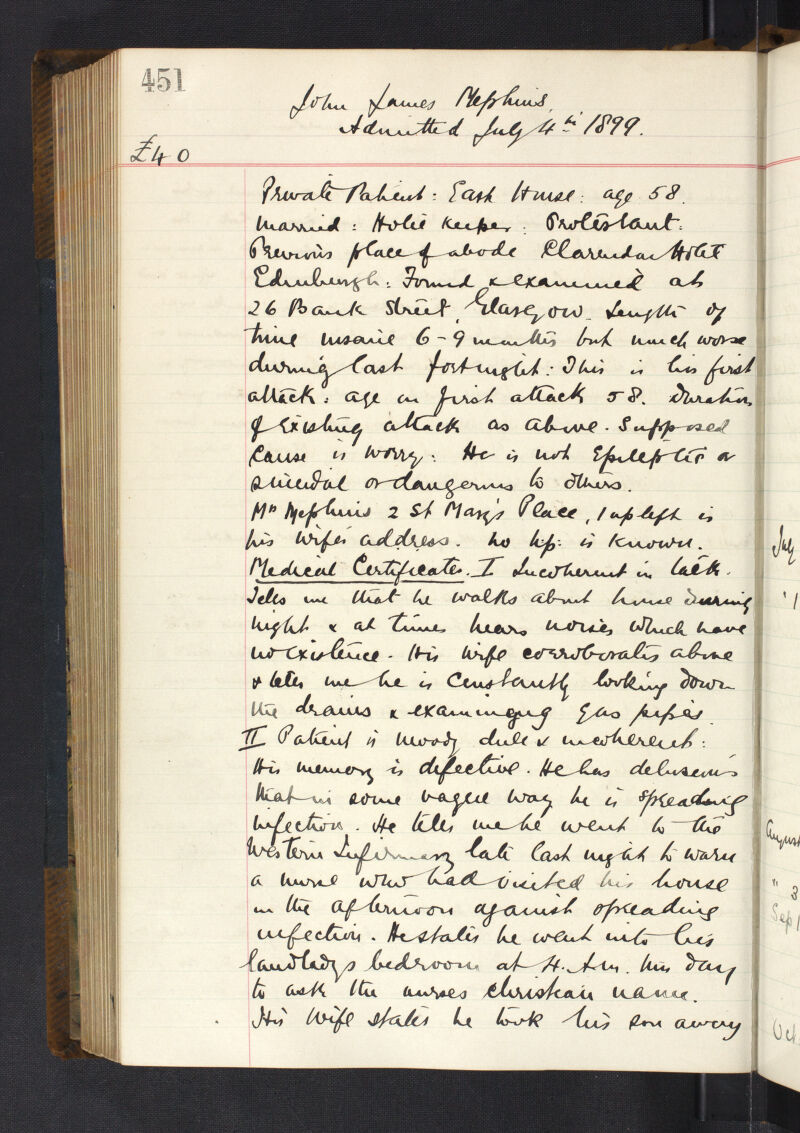 451
John James Mephius.
Admitted July 4th 1899.
£40
Private Patient: East House: age 58.
Married: Hotel Keeper: Protestant:
Previous place of abode Clarendon Hotel
Edinburgh: Found & examined at
26 Bank Street, Glasgow. Length of
time insane 6-9 months but much worse
during last fortnight: This is his first
attack: age on first attack 58. Duration
of existing attack as above. Supposed
Cause is worry. He is not Epileptic or
suicidal or dangerous to others.
Mrs Mephius 2 St Mary's Place, 1 up left is
his wife's address. No h.p. is known.
Medical Certificates. I Incoherent in talk.
Tells me that he walks about house during
night & at times hears noises which have
no existence. His wife corroborates above
& tells me he is constantly looking down
the drains & examinging gas pipes.
II Patient is moody dull & incoherent:
His memory is defective. He has delusions
that in some vague way he is spreading
infection. He tells me he went to the
Western Infirmary late last night to warn
a nurse who had visited his house
in the afternoon against spreading
infection. He states he went into his
landladys bedroom at 4. A.m. this day
to ask the nurses christian name.
His wife states he took his son away
July
" 1
August
" 3
Sep 1
Oct